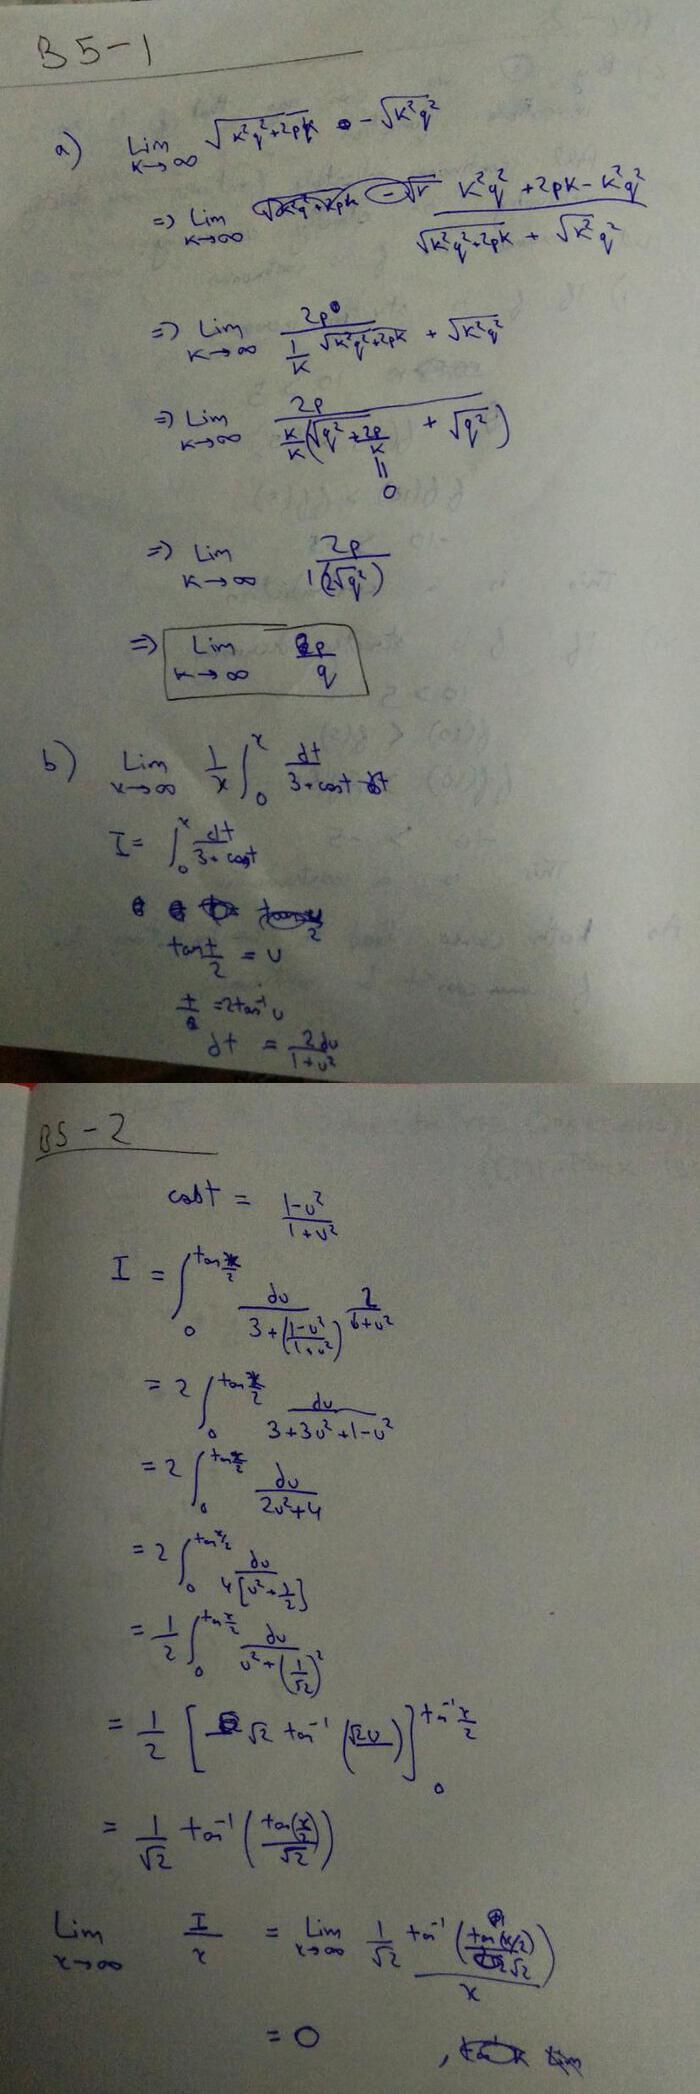 B5-1
a) Lim K→∞ √(K²q²+2pk) - √(K²q²)
⇒ Lim K→∞ (K²q² + 2pK - K²q²) / (√(K²q²+2pK) + √(K²q²))
⇒ Lim K→∞ 2p / (1/K √(K²q²+2pk) + √(K²q²))
⇒ Lim K→∞ 2p / (K/K (√(q² + 2p/K) + √(q²)))
||
0
⇒ Lim K→∞ 2p / 1(2√q²)
⇒ Lim K→∞ p/q
b) Lim x→∞ 1/x ∫₀ˣ dt / (3+cost)
I = ∫₀ˣ dt / (3+cost)
tan t/2 = u
t = 2tan⁻¹u
dt = 2du / (1+u²)
B5-2
cost = (1-u²) / (1+u²)
I = ∫₀^(tan x/2) du / (3 + ((1-u²)/(1+u²))) 2/(1+u²)
= 2 ∫₀^(tan x/2) du / (3+3u²+1-u²)
= 2 ∫₀^(tan x/2) du / (2u²+4)
= 2 ∫₀^(tan x/2) du / 4[u²+1/2]
= 1/2 ∫₀^(tan x/2) du / (u²+(1/√2)²)
= 1/2 [√2 tan⁻¹(√2u)]₀^(tan⁻¹ x/2)
= 1/√2 tan⁻¹(tan(x/2)/√2)
Lim x→∞ I/x = Lim x→∞ 1/√2 tan⁻¹(tan(x/2)/√2) / x
= 0